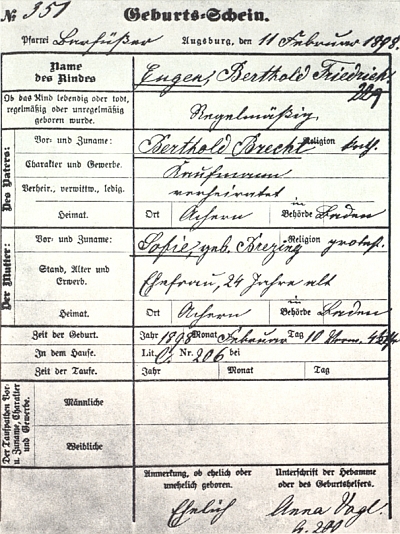 № 351
Geburts-Schein.
Pfarrei Barfüßer Augsburg, den 11 Februar 1898.
Name des Kindes
Eugen, Berthold Friedrich
Ob das Kind lebendig oder todt, regelmäßig oder unregelmäßig geboren wurde.
Regelmäßig
Des Vaters:
Vor- und Zuname: Berthold Brecht Religion kath.
Charakter und Gewerbe. Kaufmann
Verheir., verwittw., ledig. verheiratet
Heimat. Ort Achern Behörde in Baden
Der Mutter:
Vor- und Zuname: Sofie, geb. Brezing Religion protest.
Stand, Alter und Erwerb. Ehefrau, 24 Jahre alt
Heimat. Ort Achern Behörde in Baden
Zeit der Geburt. Jahr 1898 Monat Februar Tag 10 Vorm.
In dem Hause. Lit. C. Nr. 206 bei
Zeit der Taufe. Jahr Monat Tag
Der Taufpathen Vor- u. Zuname, Charakter und Gewerbe.
Männliche
Weibliche
Anmerkung, ob ehelich oder unehelich geboren.
Ehelich
Unterschrift der Hebamme oder des Geburtshelfers.
Anna Vogl.